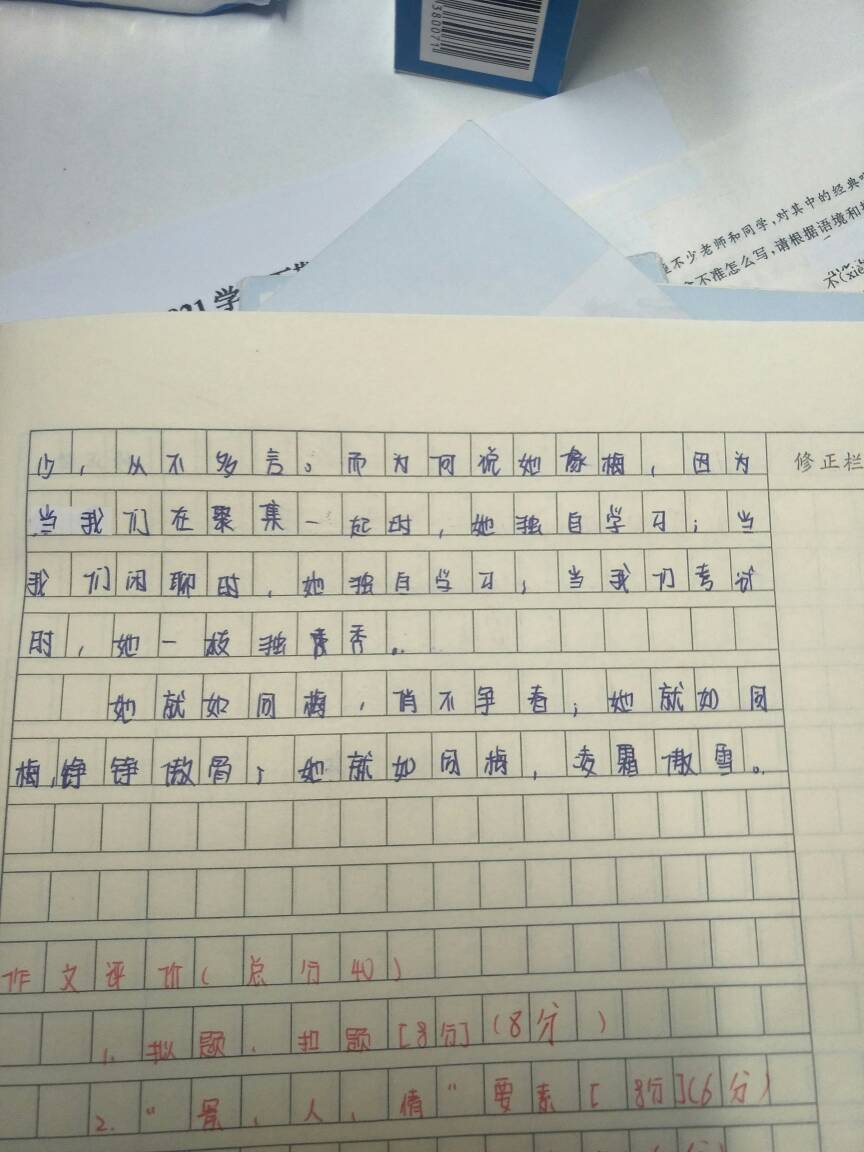 380071
不少老师和同学,对其中的经典
不准怎么写,请根据语境和
不(xiè
21学
少,从不多言。而为何说她像梅,因为
当我们在聚集一起时,她独自学习;当
我们闲聊时,她独自学习;当我们考试
时,她一枝独秀。
她就如同梅,俏不争春;她就如同
梅,铮铮傲骨;她就如同梅,凌霜傲雪。
修正栏
作文评价(总分40)
1.拟题、扣题[8分](8分)
2."景、人、情"要素[8分](6分)